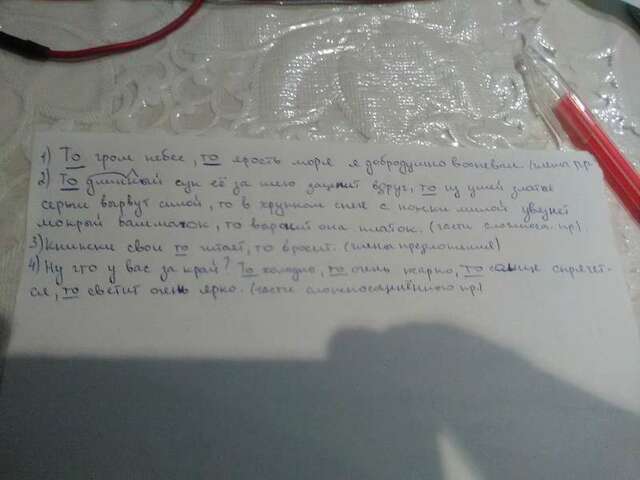 1) То гром небес, то ярость моря я добродушно воспевал. (члены пр.
2) То длинный сук её за шею зацепит вдруг, то из ушей златые
серьги вырвут силой, то в хрупком снеге с ножки милой увязнет
мокрый башмачок, то выронит она платок. (части сложного пр)
3) Книжки свои то читает, то бросит. (члены предложения)
4) Ну что у вас за край? То холодно, то очень жарко, то солнце спрячет-
ся, то светит очень ярко. (части сложносочинённого пр)